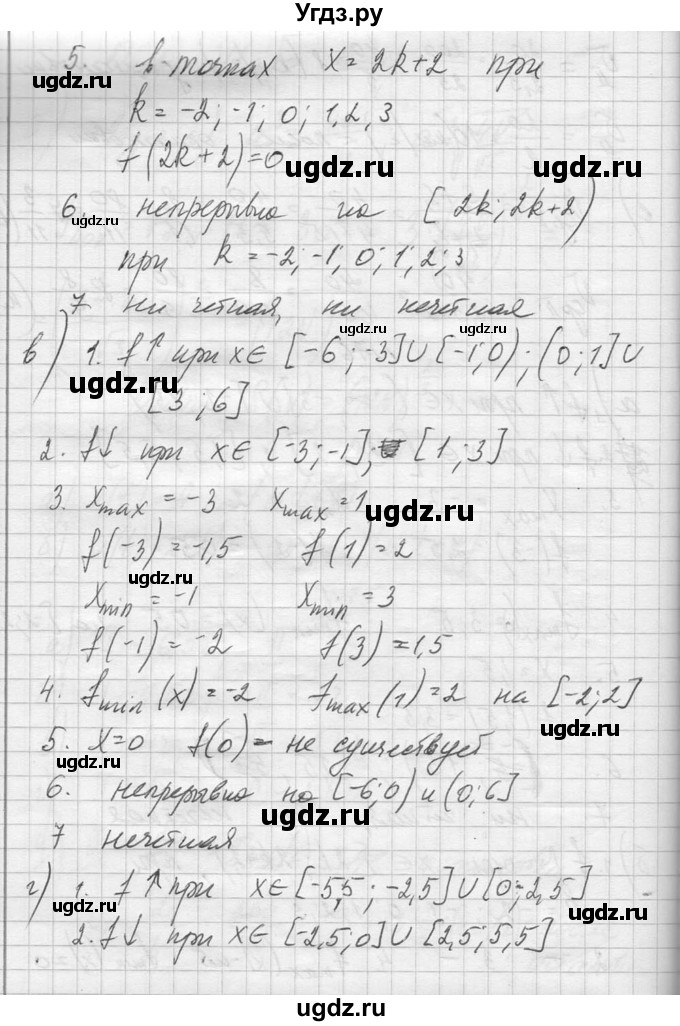 Угдз.ру
5. в точках x = 2k+2 при
k = -2; -1; 0; 1, 2, 3
f(2k+2)=0
ugdz.ru ugdz.ru
6. непрерывна на [2k; 2k+2)
ugdz.ru
при k = -2; -1; 0; 1; 2; 3
7 ни четная, ни нечетная
ugdz.ru ugdz.ru
в) 1. f↑ при x∈ [-6; -3]∪[-1;0); (0;1]∪
[3; 6]
ugdz.ru
2. f↓ при x∈ [-3;-1]; [1; 3]
3. xmax = -3 xmax = 1
ugdz.ru ugdz.ru
f(-3) = -1,5 f(1) = 2
ugdz.ru
xmin = -1 xmin = 3
f(-1) = -2 f(3) = 1,5
4. fmin(x) = -2 fmax(1) = 2 на [-2; 2]
ugdz.ru ugdz.ru
5. x=0 f(0) - не существует
6. непрерывно на [-6;0) и (0;6]
ugdz.ru
7 нечетная
г) 1. f↑ при x∈ [-5,5; -2,5]∪[0; 2,5]
ugdz.ru ugdz.ru
2. f↓ при x∈ [-2,5; 0]∪[2,5; 5,5]
ugdz.ru